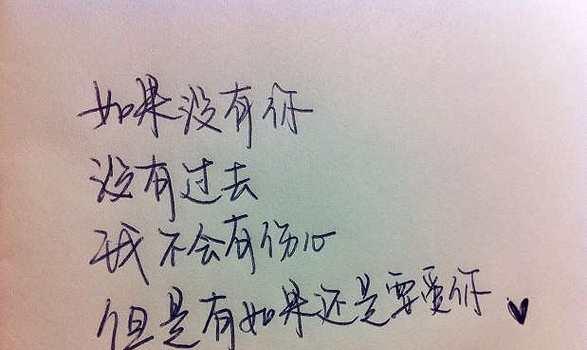 如果没有你
没有过去
我不会有伤心
但是有如果还是要爱你